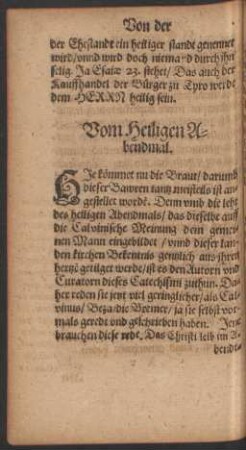 Von der
der Ehestandt ein heiliger standt genennet
wird/ vnnd wird doch niemand durch jhn
selig. Ja Esaiæ 23. stehet/ Das auch der
Kauffhandel der Bürger zu Tyro werde
dem HERRN heilig sein.
Vom Heiligen A-
bendmal.
HJe kömmet nu die Braut/ darumb
dieser Bawren tantz meisteils ist an-
gestellet wordē. Denn vmb die lehr
des heiligen Abendmals/ das dieselbe auff
die Calvinische Meinung dem gemei-
nen Mann eingebildet/ vnnd dieser
kirchen Bekentnis gentzlich aus jhrem
hertzē getilget werde/ ist es den Autorn vnd
Curatorn dieses Catechismi zuthun. Da-
her reden sie jetzt viel geringlicher/ als Cal-
vinus/ Beza/ die Bremer/ ja sie selbst vor-
mals geredt vnd geschrieben haben.
brauchen diese redē. Das Christi leib im A-
bendt-